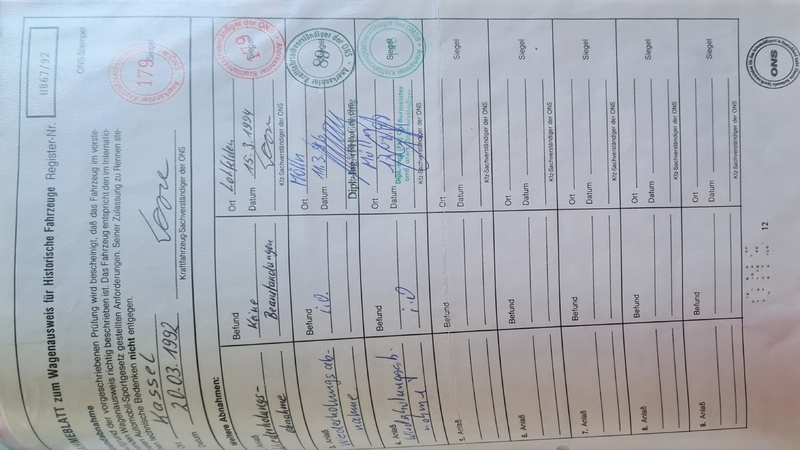 NEBLATT zum Wagenausweis für Historische Fahrzeuge Register-Nr. H867/92
abnahme
ONS-Stempel
der vorgeschriebenen Prüfung wird bescheinigt, daß das Fahrzeug im vorste-
Wagenausweis richtig beschrieben ist. Das Fahrzeug entspricht den im Internatio-
Automobil-Sportgesetz gestellten Anforderungen. Seiner Zulassung zu Rennen ste-
technische Bedenken nicht entgegen.
Kassel
Ort
20.03.1992
Datum
Kraftfahrzeug-Sachverständiger der ONS
179
Siegel
Weitere Abnahmen:
Anlaß
Wiederholungs-
abnahme
Befund
Keine
Beanstandungen
Ort
Datum 15.3.1994
Kfz-Sachverständiger der ONS
Siegel
179
3. Anlaß
Wiederholungsab-
nahme
Befund
i.O.
Ort Mölln
Datum
Siegel
89
4. Anlaß
Befund
i.O
Ort Mölln
Datum
Kfz-Sachverständiger der ONS
Siegel
5. Anlaß
Befund
Ort
Datum
Kfz-Sachverständiger der ONS
Siegel
6. Anlaß
Befund
Ort
Datum
Kfz-Sachverständiger der ONS
Siegel
7. Anlaß
Befund
Ort
Datum
Kfz-Sachverständiger der ONS
Siegel
8. Anlaß
Befund
Ort
Datum
Kfz-Sachverständiger der ONS
Siegel
9. Anlaß
Befund
Ort
Datum
Kfz-Sachverständiger der ONS
Siegel
12
ONS